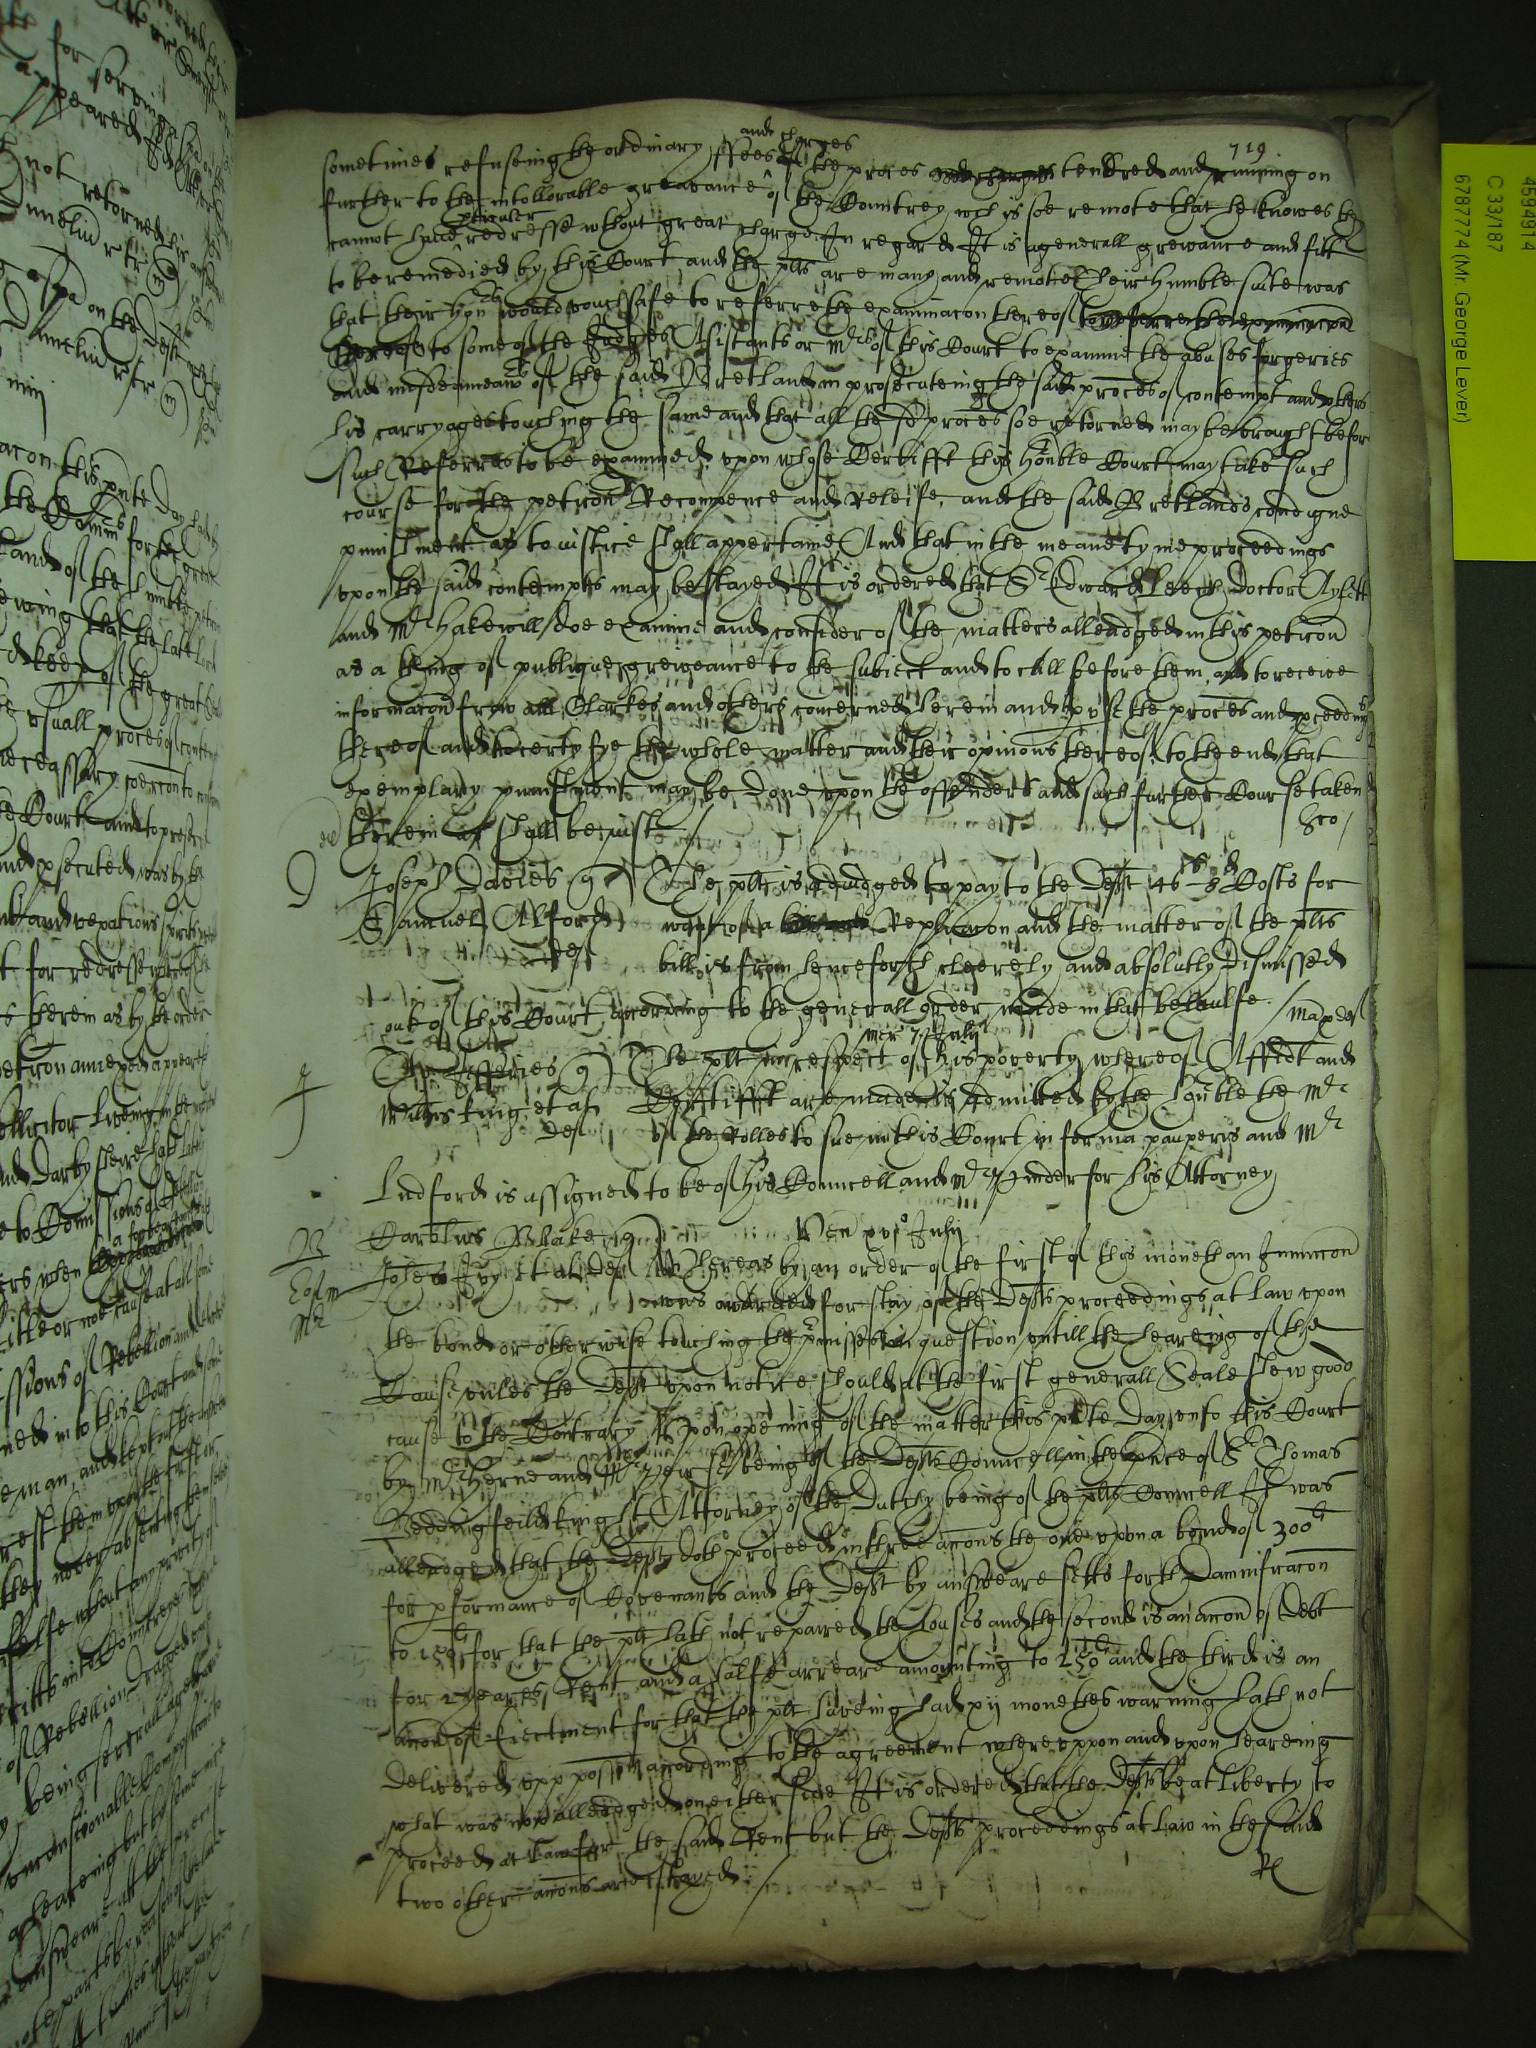 719
sometimes refuseing the ordinary ffees and charges of the proces tendred and running on
further to the intollorable greavance of the Countrey wch is soe remote that he knowes they
cannot have perticuler redresse wthout great charge In regard It is a generall grevance and fitt
to be remedied by this Court and the plts are many and remote Their humble suite was
that their hono.rs would vouchsafe to referre the examinacon thereof to referre the examinacon
thereof to some of the Judges Assistants or Mrs of this Court to examine the abuses forgeries
and misdemeanors of the said Bretland in prosecuteing the said proces of contempt and others
his carryages touching the same and that all these proces soe retorned may be brought before
such Referres to be examined upon whose Certifft this Honble Court may take such
course for the peticonrs Recompence and Releife, and the said Bretlands condigne
punishment as to iustice shall appertaine And that in the meane tyme proceedings
upon the said contempts may be stayed It is ordered that Sr Edward Leech Doctor Aylett
and Mr Hakewill doe examine and consider of the matters alleadged in this peticon
as a thing of publique greivance to the subiect and to call before them and to receive
informacon from all Clarkes and others concerned therein and to p'use the proces and proceedings
thereof and to certyfye the whole matter and their opinions thereof to the end that
exemplary punishment may be done upon the offenders and such further Course taken
therein as shall be iust /
D Joseph Davies q) The plt is adiudged to pay to the Deft 46s 8d Costs for
Samuel Alford) want of a Replicacon and the matter of the plts
def bill is from henceforth cleerely and absolutly dismissed
out of this Court according to the generall order made in that behaulfe. / Maxdef
Mer 7 July
J Jefferies q) The plt in respect of his poverty whereof Affidt and
King et al) Certifft are made is admitted by the honble the Mr
def of the Rolles to sue in this Court in forma pauperis and Mr
Ludford is assigned to be of his Councell and Mr Pinder for his Attorney
B Carolus Blake q) Ven xvjo July
Johes Ivy et al def Whereas by an order of the first of this moneth an Iniunccon
was awarded for stay of the Defts proceedings at law upon
the bond or otherwise touching the p'misses in question untill the heareing of the
Cause unles the Deft upon notice should at the first generall Seale shew good
cause to the Contrary Upon opening of the matter this p'nte Day unto this Court
by Mr Herne and Mr being of the Defts Councell in the p'nce of Sr Thomas
Beddingfeild knight Attorney of the Dutchy being of the plts Councell It was
alleadged that the Deft doth proceed in three accons the one upon a bond of 300li
for p'formance of Covenants and the Deft by answeare setts forth Damnificacon
to 150li for that the plt hath not repaired the houses and the second is an accon of Debt
for 2 yeares Rent and a halfe arreare amounting to 250li and the third is an
accon of Eiectment for that the plt haveing had xij monethes warning hath not
delivered upp possion according to the agreement whereuppon and upon heareing
what was now alleadged on either side It is ordered that the Defts be at liberty to
proceed at Law for the said Rent but the Defts proceedings at Law in the said
two other accons are stayed /